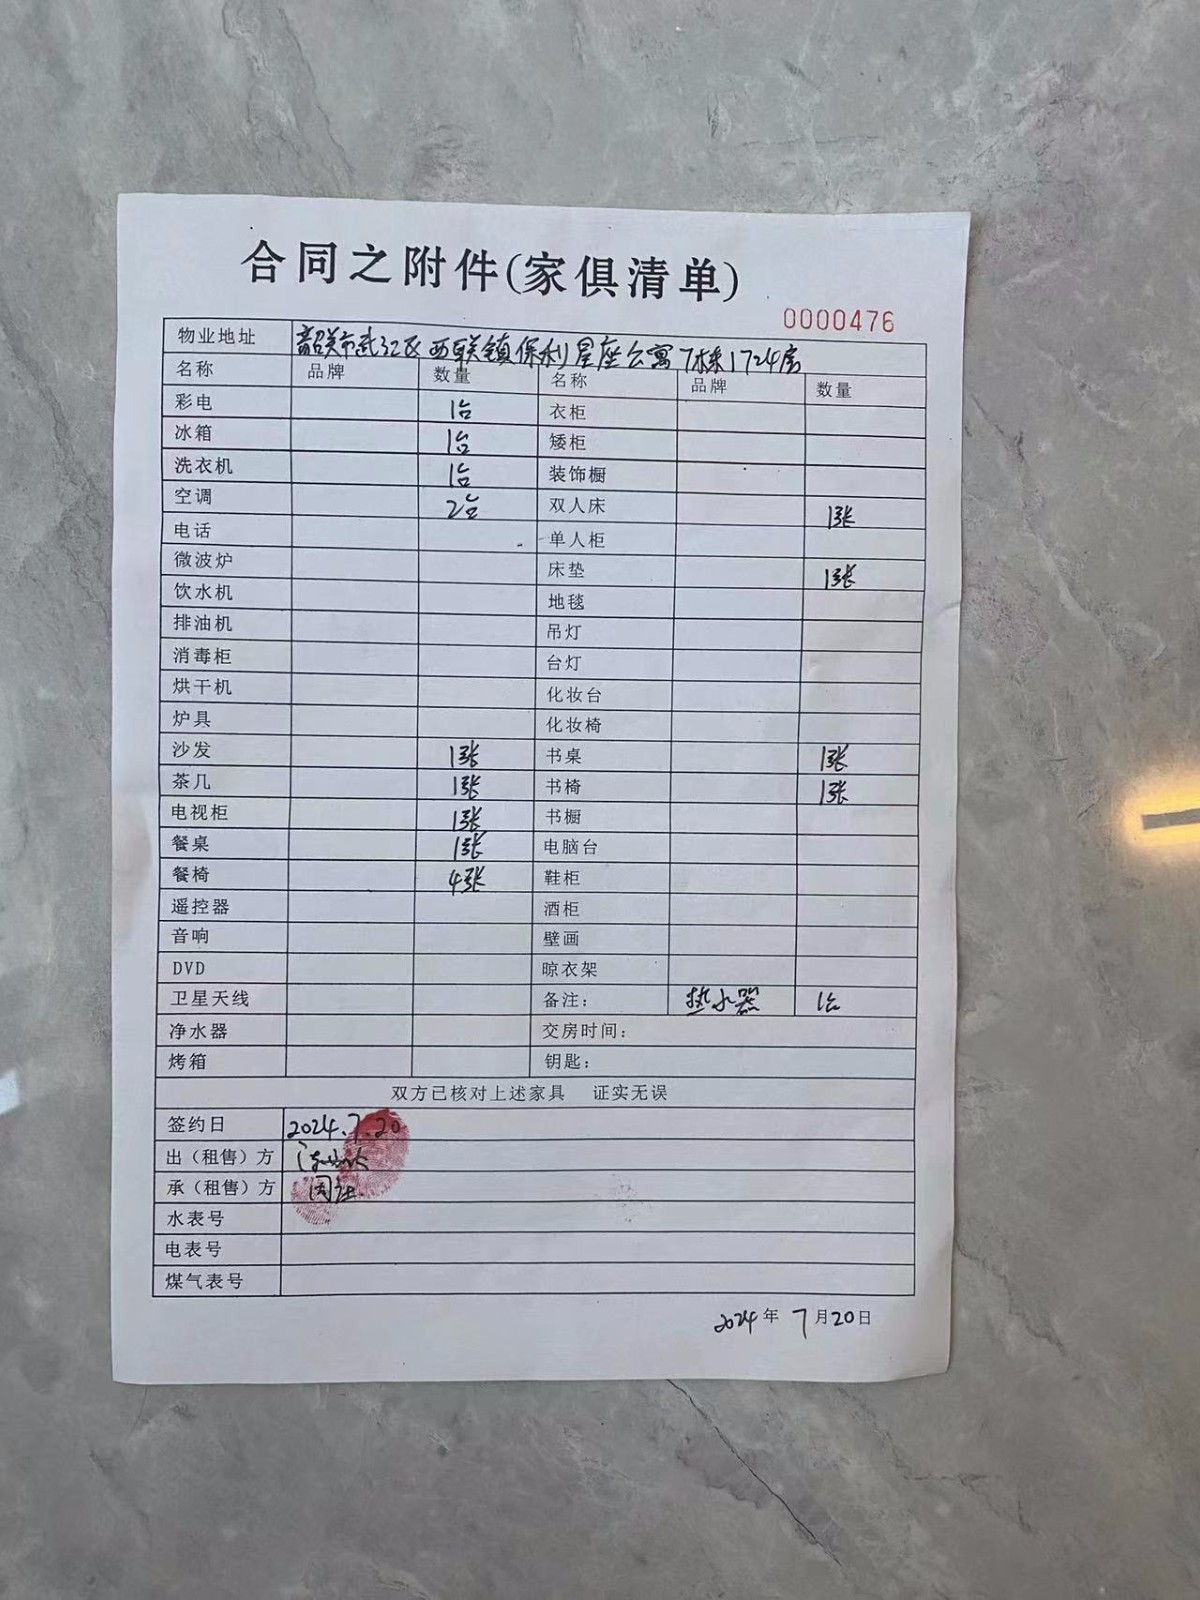 合同之附件(家俱清单)
0000476
物业地址 韶关市武江区西联镇保利星座公寓7栋1724房
名称 品牌 数量 名称 品牌 数量
彩电 1台 衣柜
冰箱 1台 矮柜
洗衣机 1台 装饰橱
空调 2台 双人床 1张
电话 单人柜
微波炉 床垫 1张
饮水机 地毯
排油机 吊灯
消毒柜 台灯
烘干机 化妆台
炉具 化妆椅
沙发 1张 书桌 1张
茶几 1张 书椅 1张
电视柜 1张 书橱
餐桌 1张 电脑台
餐椅 4张 鞋柜
遥控器 酒柜
音响 壁画
DVD 晾衣架
卫星天线 备注： 热水器 1台
净水器 交房时间：
烤箱 钥匙：
双方已核对上述家具 证实无误
签约日 2024.7.20
出（租售）方
承（租售）方
水表号
电表号
煤气表号
2024年 7月20日